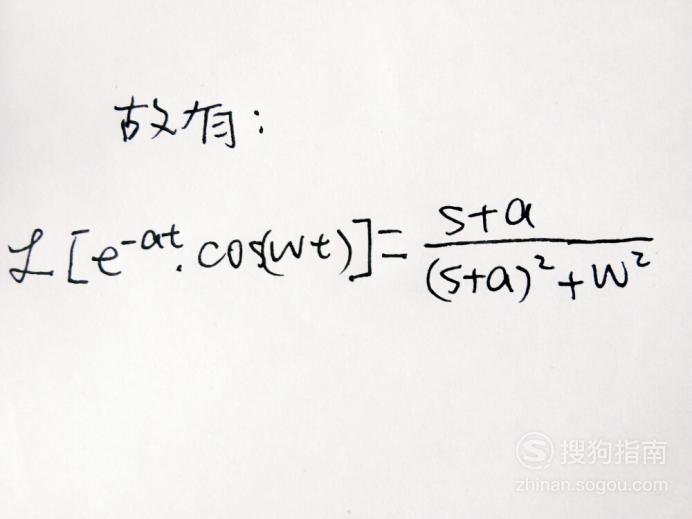 故有:
ℒ[e^{-at}·cos(wt)]=\frac{s+a}{(s+a)^2+w^2}
搜狗指南
zhinan.sogou.com